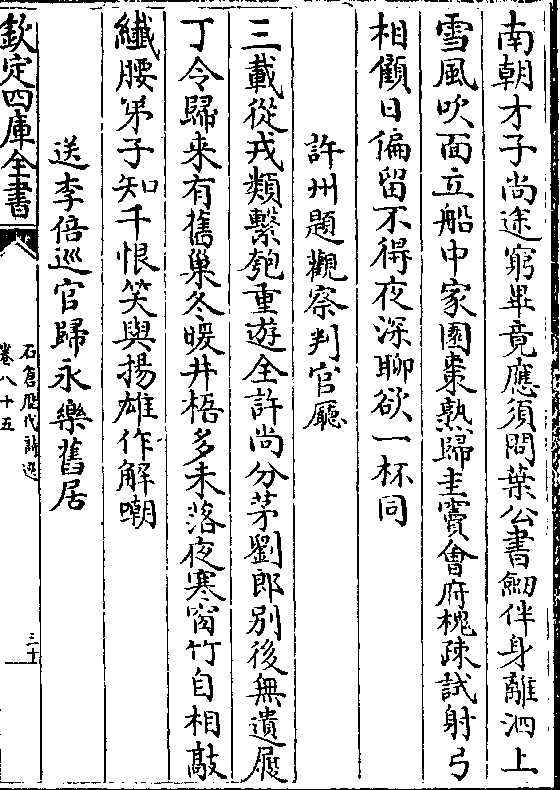 南朝才子尚途窮畢竟應須問葉公書劒伴身離泗上
雪風吹面立船中家園棗熟歸圭竇會府槐疎試射弓
相顧日偏留不得夜深聊欲一杯同
許州題觀察判官廳
三載從戎類繫匏重遊全許尚分茅劉郎别後無遺屐
丁令歸来有舊巢冬暖井梧多未落夜寒窗竹自相敲
纎腰弟子知千恨笑與揚雄作解嘲
送李倍巡官歸永樂舊居
欽定四庫全書
石倉歷代詩選
卷八十五
三十